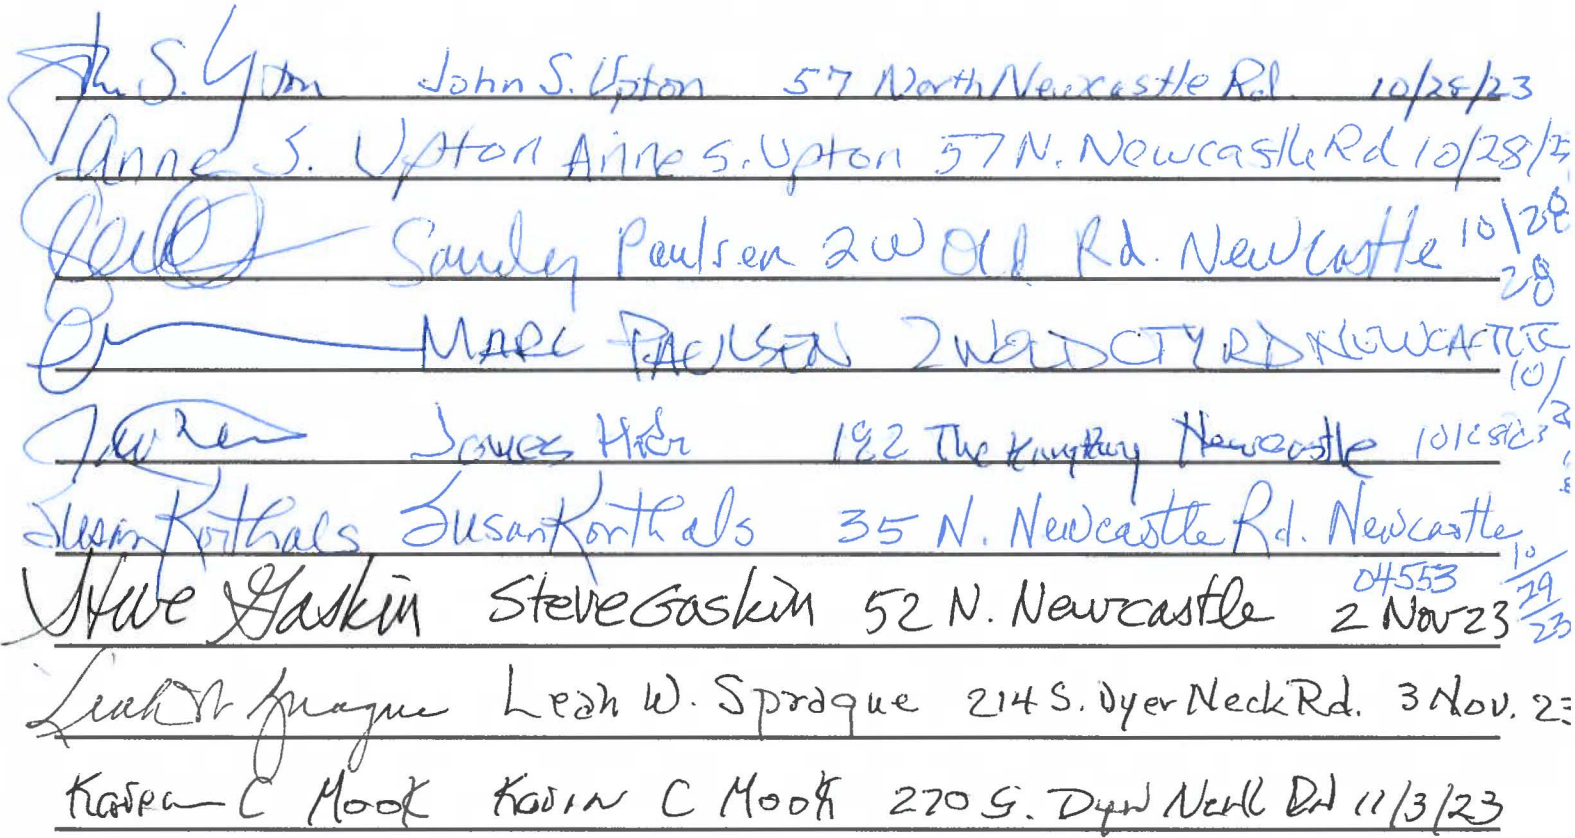 John S. Upton John S. Upton 57 North Newcastle Rd. 10/28/23
Anne S. Upton Anne S. Upton 57 N. Newcastle Rd 10/28/2
Sandy Paulsen 2 W Old Rd. NewCastle 10/28
MARC PAULSEN 2 W OLD CTY RD NEWCASTLE 10/28
James 192 The Newcastle 10/28/23
Susan Korthals Susan Korthals 35 N. Newcastle Rd. Newcastle 04553 10/29/23
Steve Gaskin Steve Gaskin 52 N. Newcastle 2 Nov 23
Leah W Sprague Leah W. Sprague 214 S. Dyer Neck Rd. 3 Nov. 23
Karen C Mook Karen C Mook 270 S. Dyer Neck Rd 11/3/23